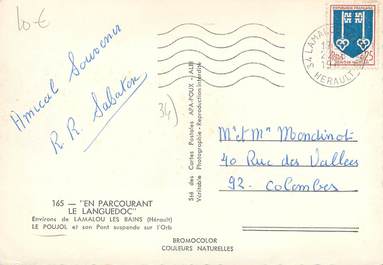 10 €
Amical Souvenir
R. R. Sabaton
34)
165 — "EN PARCOURANT
LE LANGUEDOC"
Environs de LAMALOU LES BAINS (Hérault)
LE POUJOL et son Pont suspendu sur l'Orb
BROMOCOLOR
COULEURS NATURELLES
Sté des Cartes Postales APA-POUX - ALBI
Véritable Photographie - Reproduction Interdite
34 LAMALOU
HERAULT
REPUBLIQUE FRANÇAISE
0,25
Mr et Mme Mondinot
40 Rue des Vallées
92. Colombes